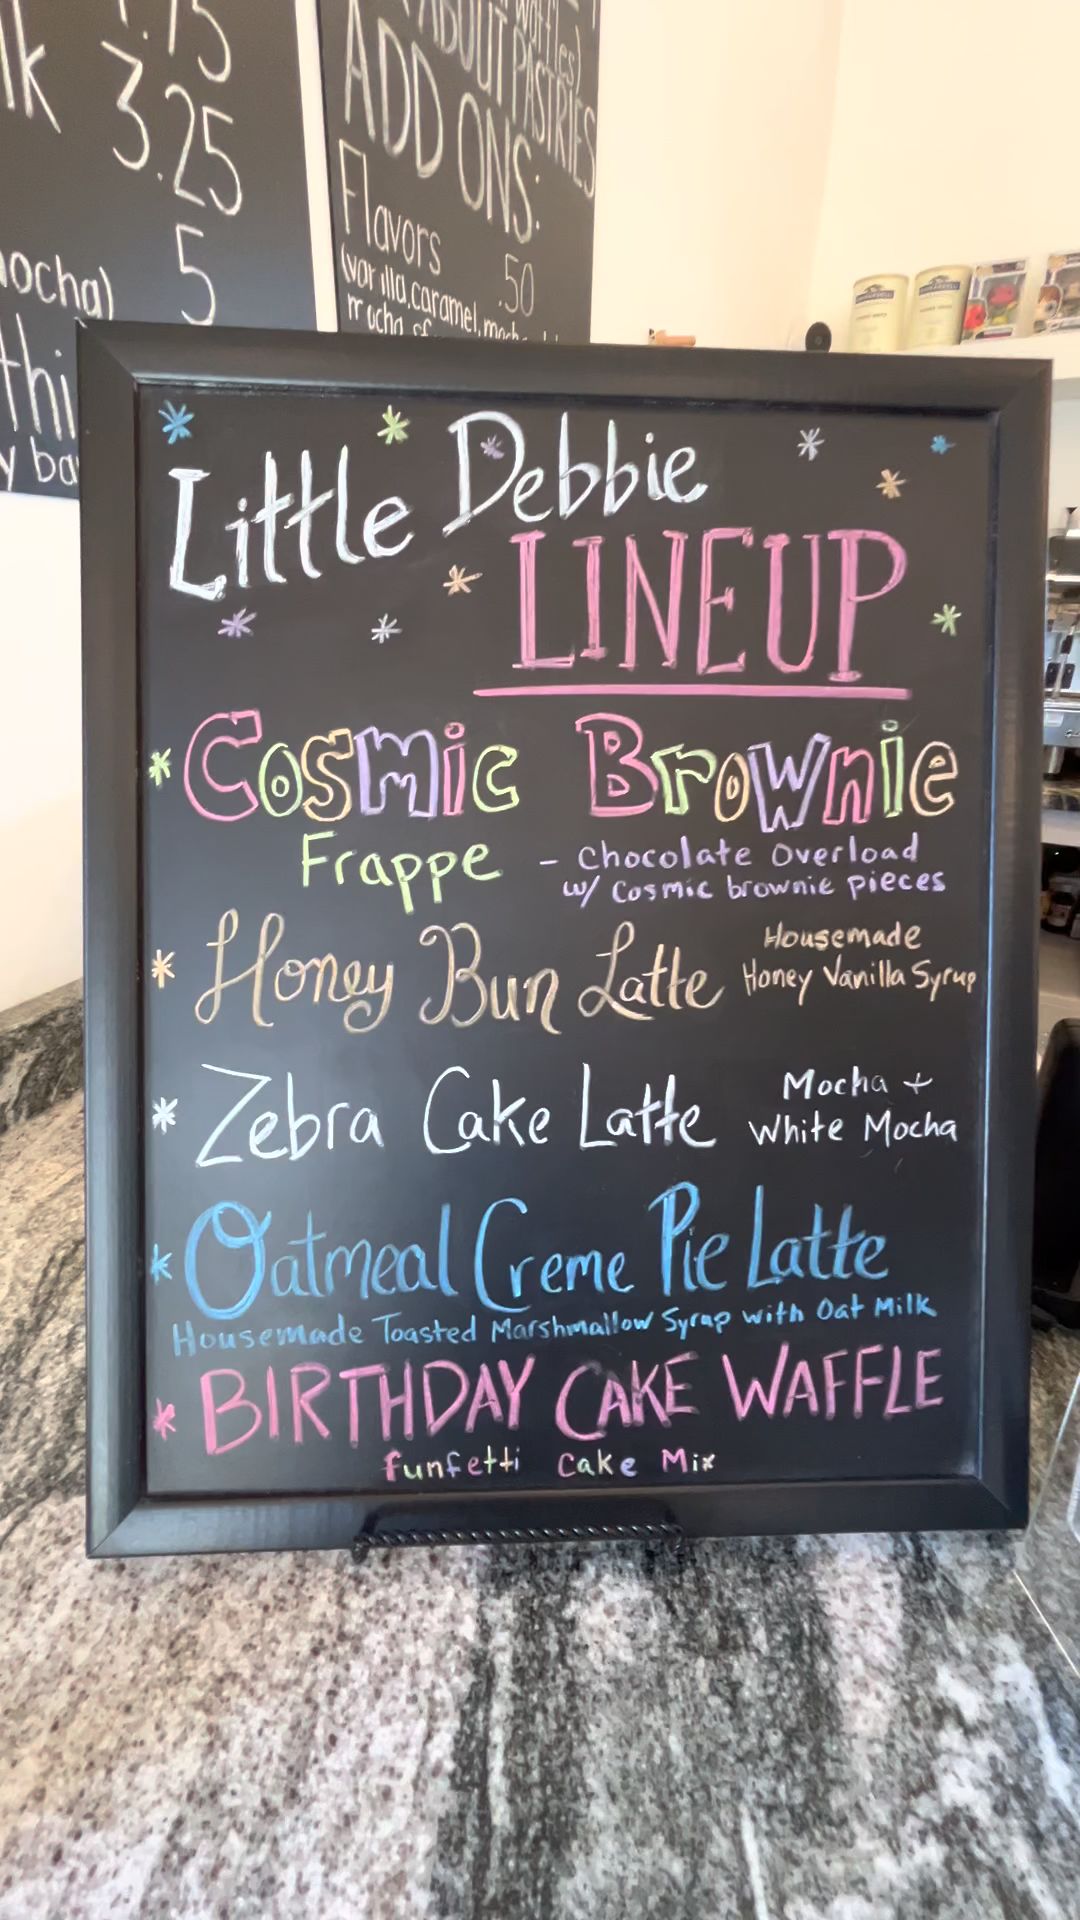 .75
lk 3.25
5
mocha)
thi
y ba
waffles)
ABOUT PASTRIES
ADD ONS:
Flavors .50
caramel,
Little Debbie
LINEUP
* Cosmic Brownie
Frappe - Chocolate Overload
w/ Cosmic brownie pieces
* Honey Bun Latte Housemade
Honey Vanilla Syrup
* Zebra Cake Latte Mocha +
White Mocha
* Oatmeal Creme Pie Latte
Housemade Toasted Marshmallow Syrup with Oat Milk
* BIRTHDAY CAKE WAFFLE
funfetti cake Mix